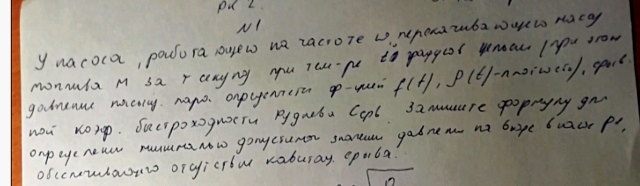 РК 2.
N1
У насоса, работающего на частоте ω, перекачивающего массу
топлива M за τ секунд при тем-ре t0 градусов цельсия (при этом
давление насыщ. пара определяется ф-цией f(t), ρ(t)-плотность), срыв-
ной коэф. быстроходности Руднева Cсрв. Запишите формулу для
определения минимально допустимого значения давления на входе в насос P1,
обеспечивающего отсутствие кавитац. срыва.